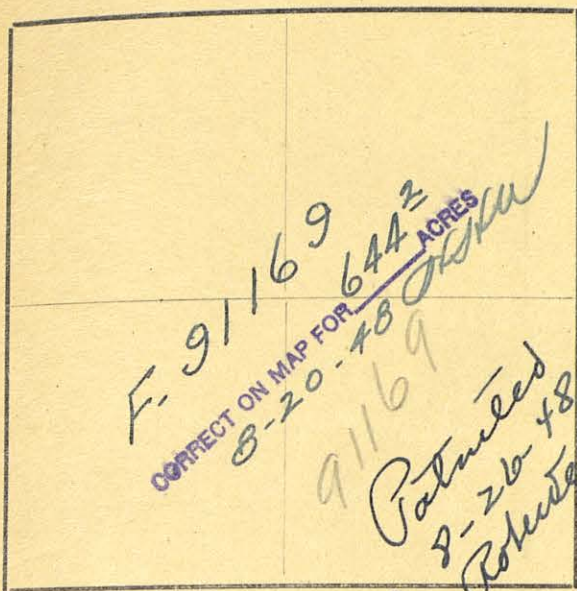 F. 91169
CORRECT ON MAP FOR 644² ACRES
8-20-48
91169
Patented
8-26-48